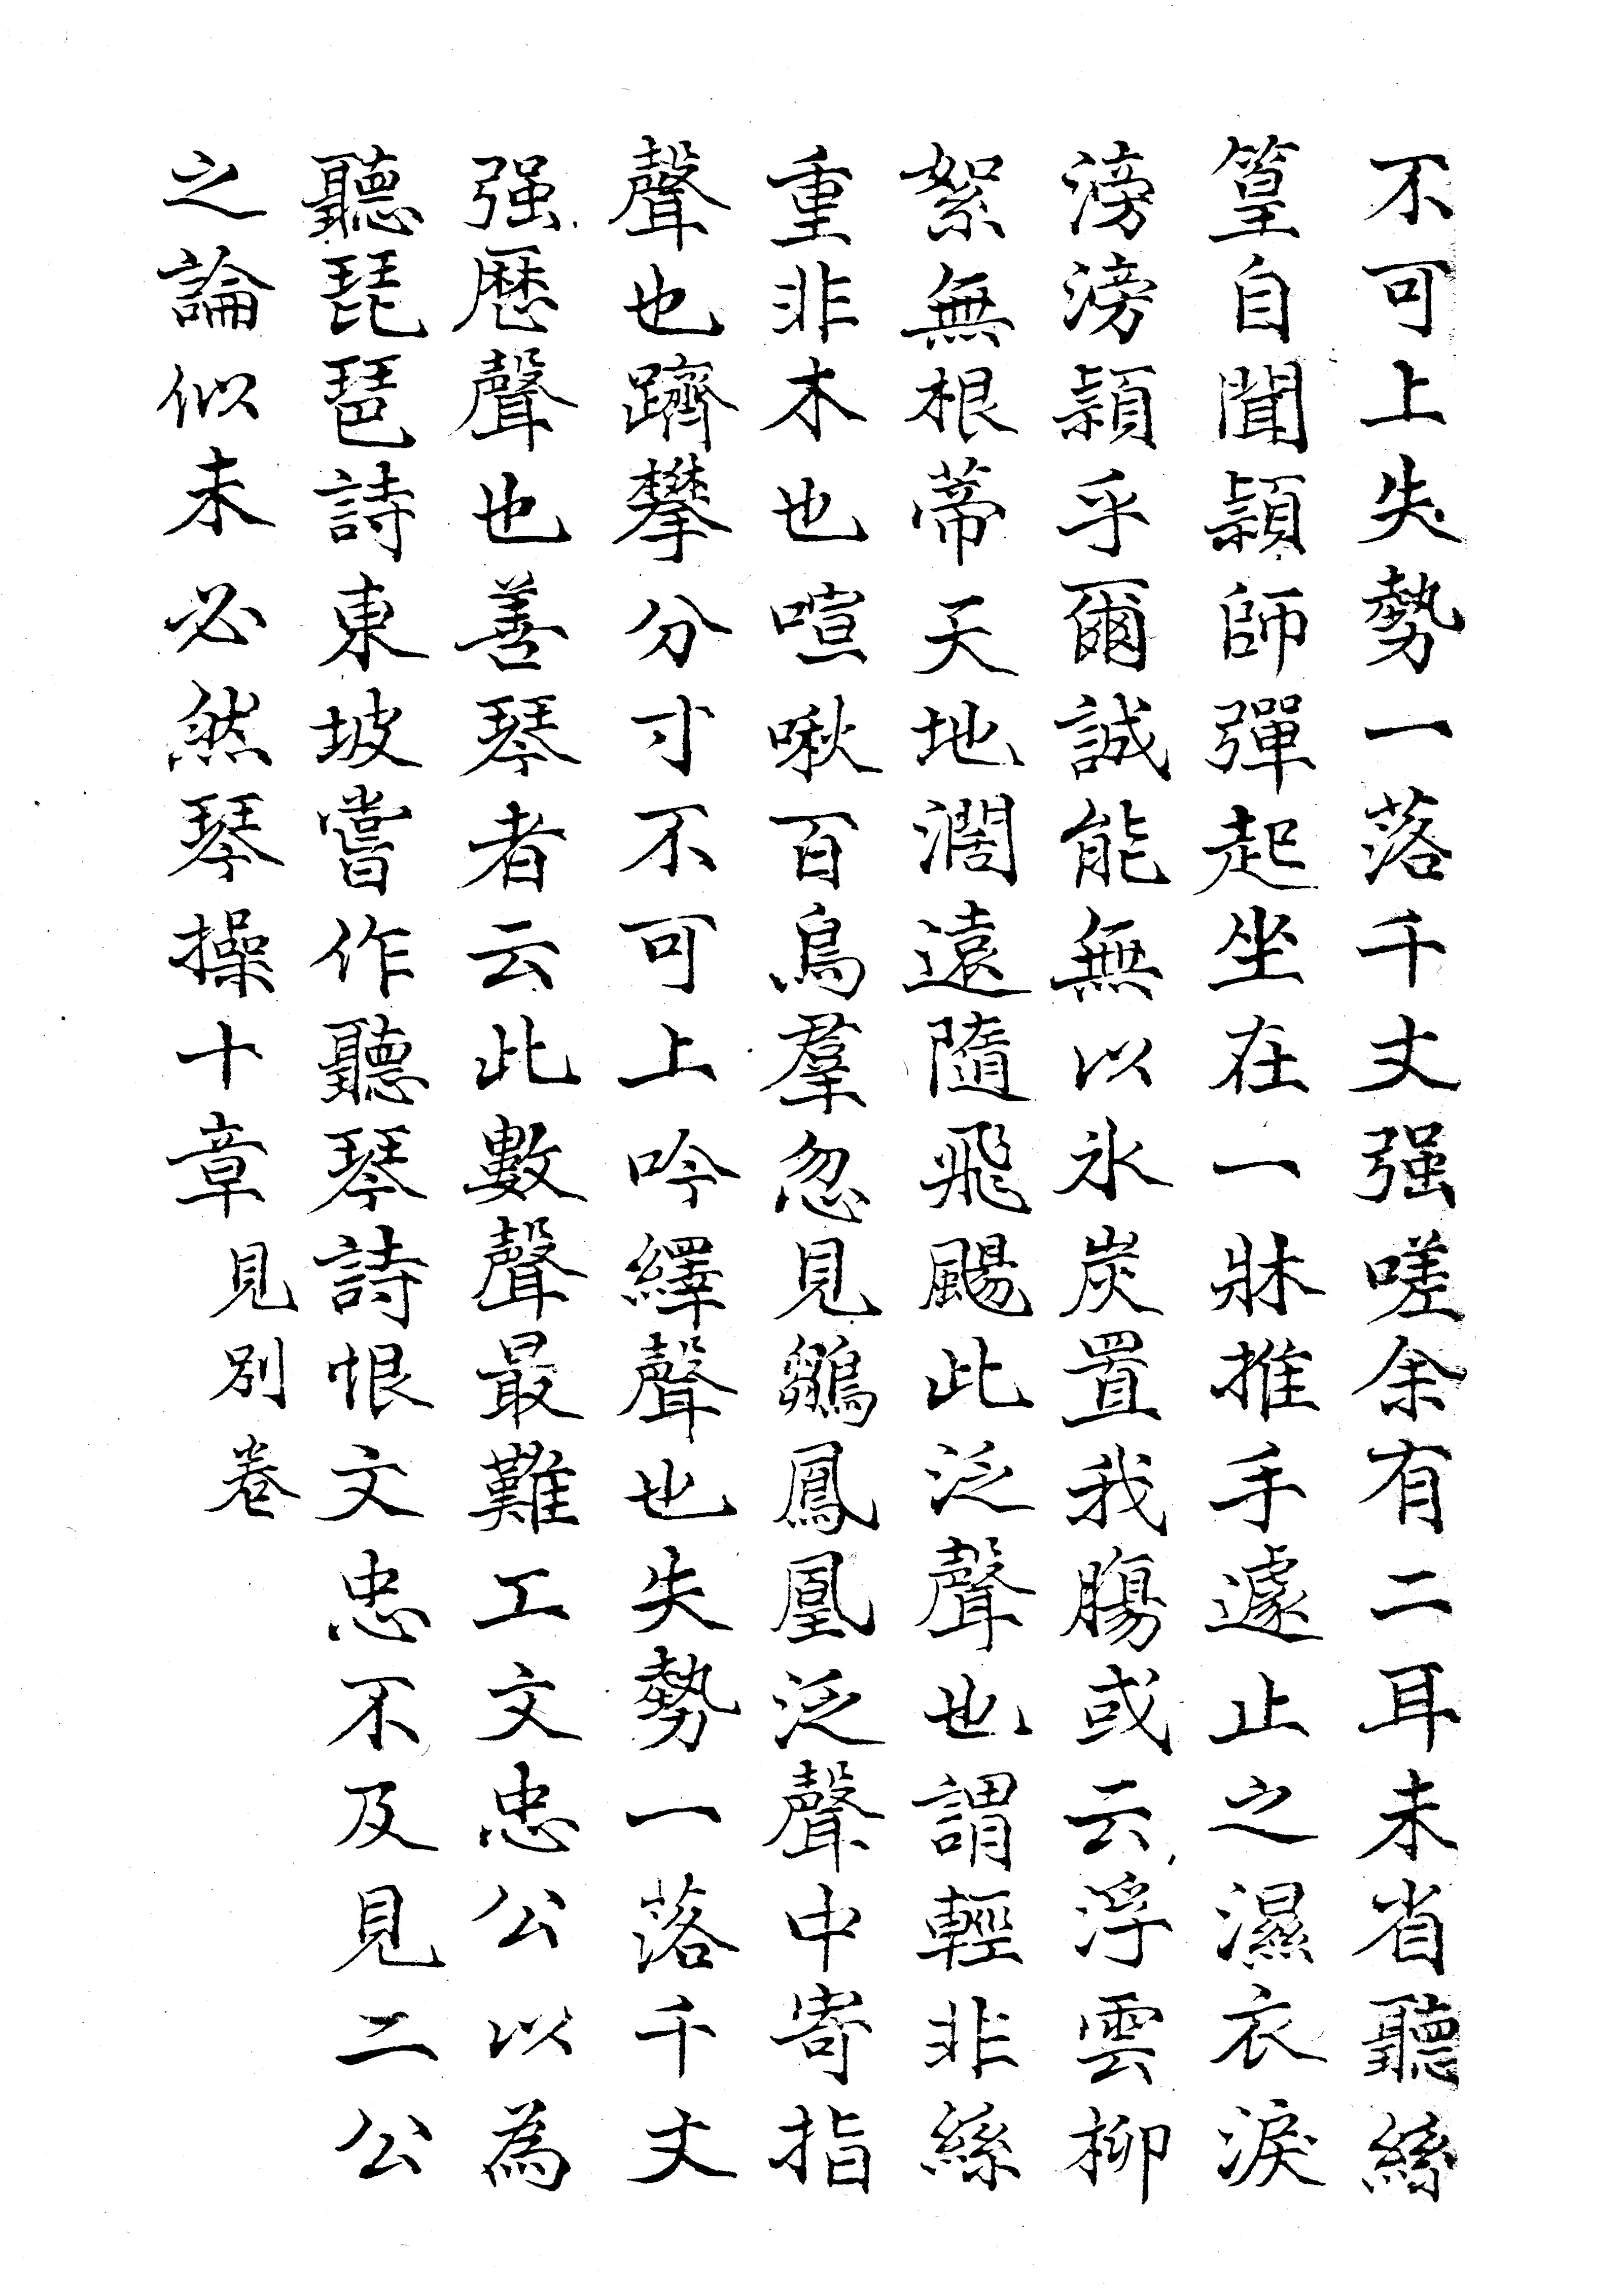 不可上失勢一落千丈强嗟余有二耳未省聽絲
篁自聞頴師彈起坐在一牀推手遽止之濕衣淚
滂滂頴乎爾誠能無以氷炭置我腸或云浮雲柳
絮無根蒂天地濶遠隨飛颺此泛聲也謂輕非絲
重非木也喧啾百鳥羣忽見鶵鳳凰泛聲中寄指
聲也躋攀分寸不可上吟繹聲也失勢一落千丈
强歷聲也善琴者云此數聲最難工文忠公以為
聽琵琶詩東坡嘗作聽琴詩恨文忠不及見二公
之論似未必然琴操十章見別卷